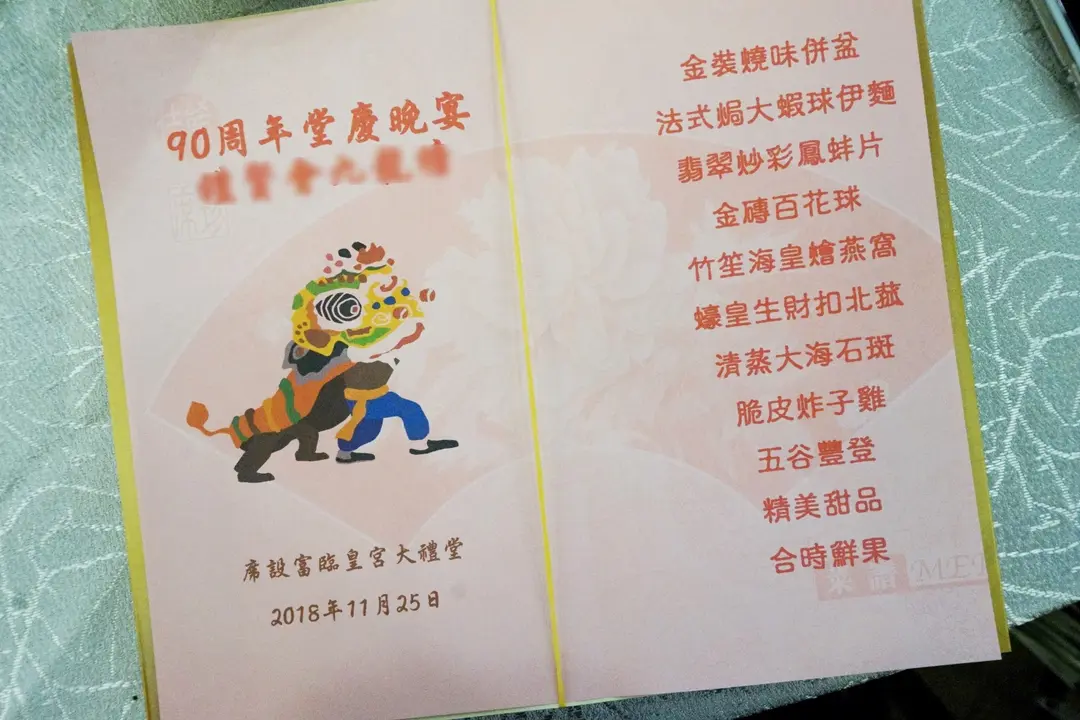 90周年堂慶晚宴
席設富臨皇宮大禮堂
2018年11月25日
金裝燒味併盆
法式焗大蝦球伊麵
翡翠炒彩鳳蚌片
金磚百花球
竹笙海皇燴燕窩
蠔皇生財扣北菰
清蒸大海石斑
脆皮炸子雞
五谷豐登
精美甜品
合時鮮果